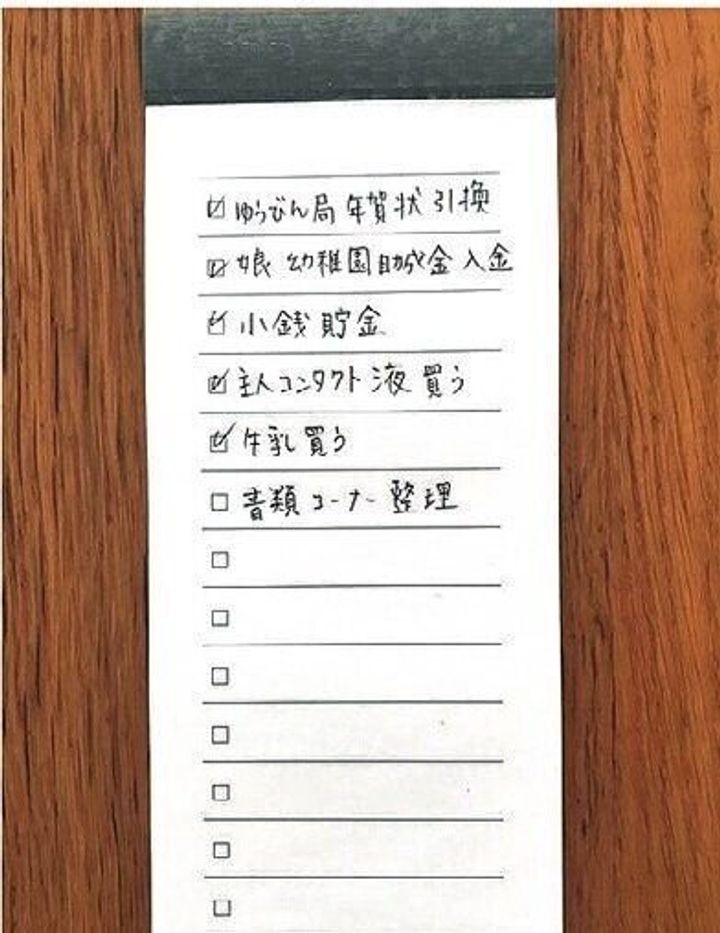 ☑ ゆうびん局 年賀状 引換
☑ 娘 幼稚園助成金 入金
☑ 小銭 貯金
☑ 主人コンタクト液 買う
☑ 牛乳買う
☐ 書類コーナー 整理
☐
☐
☐
☐
☐
☐
☐